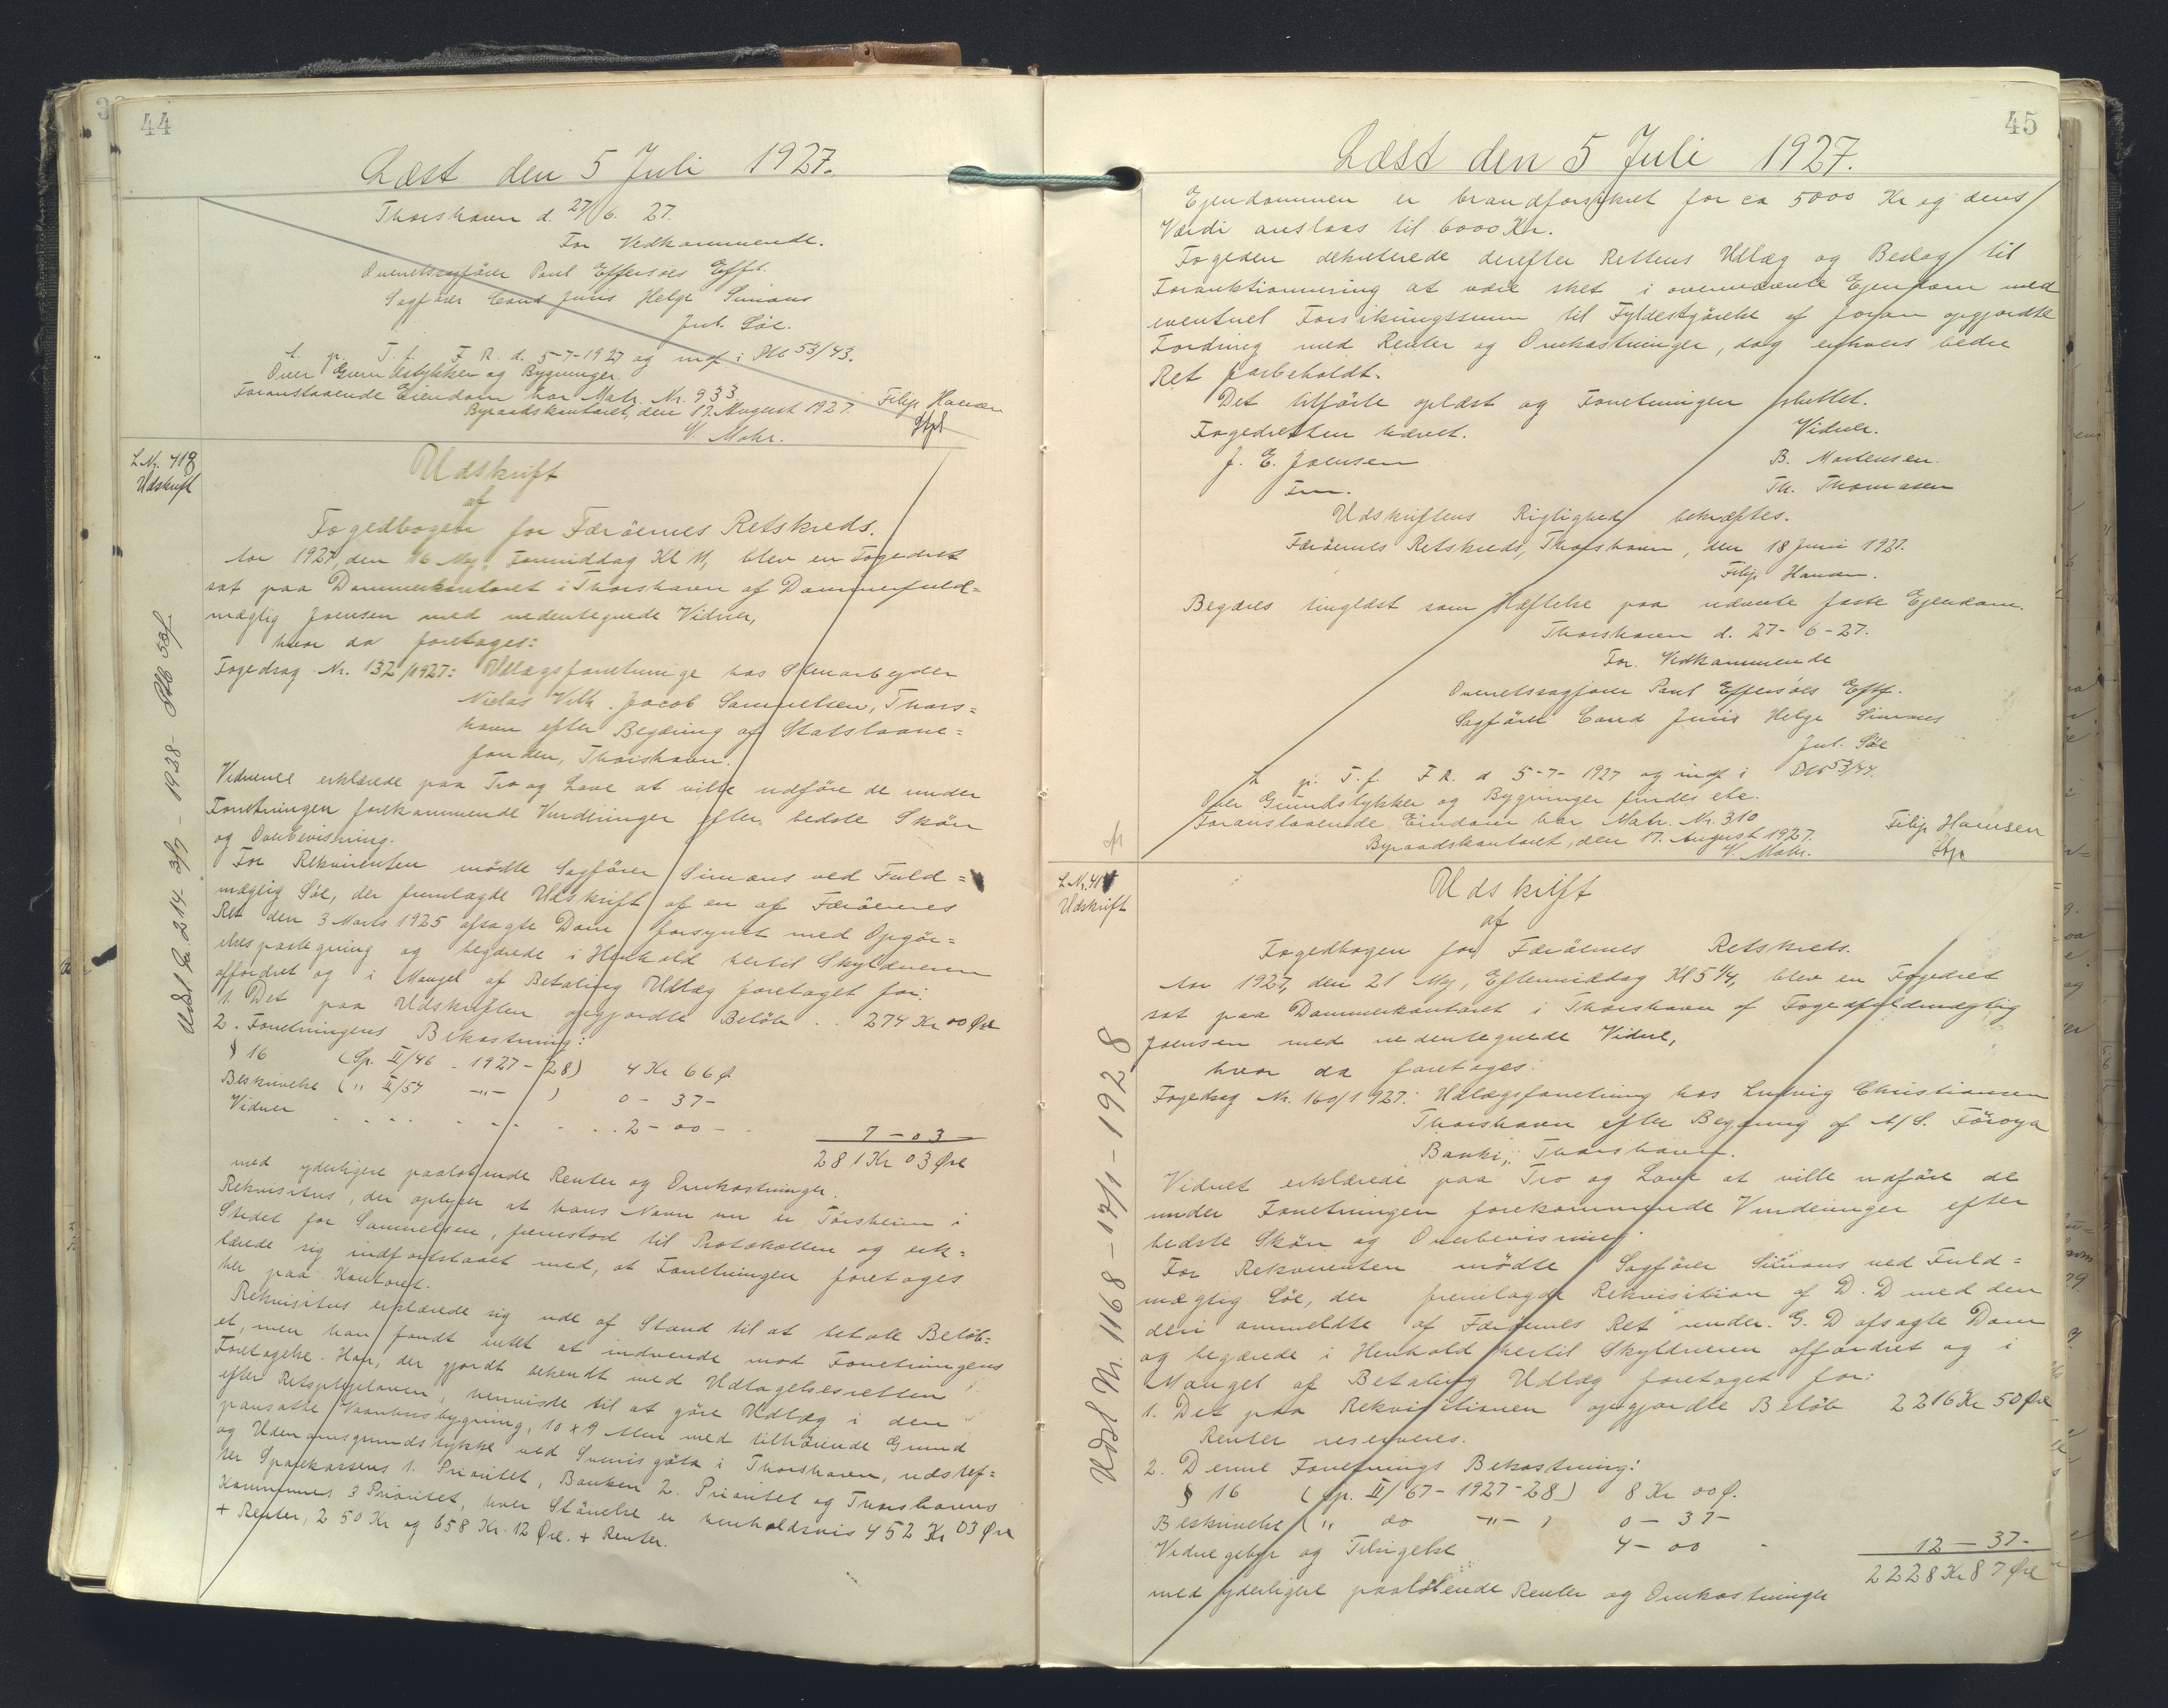 44
Læst den 5 Juli 1927.
Thorshavn d. 27/6 27.
For Vedkommende.
Overretssagfører Poul Effersøes Eftf.
Sagfører Cand Juris Helge Simans
Jul. Söe.
L. p. T. f. F. R. d. 5-7-1927 og indf i Ptb 53/43.
Over Grundstykker og Bygninger
Foranstaaende Eiendom har Matr. Nr. 933
Byraadskontoret, den 17. August 1927.
V. Mohr.
Filip Hansen
Stpl
L Nr. 418
Udskrift
Udskrift
af
Fogedbogen for Færöernes Retskreds.
Aar 1927, den 16 Maj, Formiddag Kl 11, blev en Fogedret
sat paa Dommerkontoret i Thorshavn af Dommerfuld=
mægtig Joensen med nedentegnede Vidner,
hvor da foretages:
Fogedsag Nr. 132/1927: Udlægsforretninge hos Stenarbejder
Niclas Vilh. Jacob Samuelsen, Thors=
havn efter Begæring af Statslaane=
fonden, Thorshavn.
Vidnerne erklærede paa Tro og Love at ville udføre de under
Forretningen forekommende Vurderinger efter bedste Skön
og Overbevisning.
For Rekvirenten mödte Sagfører Simans ved Fuld=
mægtig Söe, der fremlagde Udskrift af en af Færöernes
Ret den 3 Marts 1925 afsagte Dom forsynet med Opgör=
elsespaategning og begærede i Henhold hertil Skyldneren
affordret og i Mangel af Betaling Udlæg foretaget for:
1. Det paa Udskriften opgjordte Belöb . . 274 Kr 00 Øre
2. Forretningens Bekostning:
§ 16 (Sp. II/46 - 1927-28) 4 Kr 66 Ø
Beskrivelse (" II/54 -"- ) 0 - 37 -
Vidner . . . . . . . . 2 - 00 -
7 - 03
281 Kr 03 Øre
med yderligere paalöbende Renter og Omkostninger.
Rekvisitus, der oplyser at hans Navn nu er Tórsheim i
Stedet for Samuelsen, fremstod til Protokollen og erk=
lærede sig indforstaaet med, at Forretningen foretages
her paa Kontoret.
Rekvisitus erklærede sig ude af Stand til at betale Belöb=
et, men han fandt intet at indvende mod Forretningens
Foretagelse. Han, der gjordt bekendt med Udtagelsesretten
efter Retsplejeloven, henviste til at göre Udlæg i den
pansatte Vaanhusbygning, 10 x 9 Alen med tilhörende Grund
og Udenomsgrundstykke ved Sverrisgöta i Thorshavn, udstef=
ter Sparekassens 1. Prioritet, Banken 2. Prioritet og Thorshavns
Kommunes 3 Prioritet, hver Störrelse er henholdsvis 452 Kr 03 Øre
+ Renter, 250 Kr og 658 Kr. 12 Øre. + Renter.
Udsl. Nr. 214 3/7 - 1928 - Ptb
45
Læst den 5 Juli 1927.
Ejendommen er brandforsikret for ca 5000 Kr og dens
Værdi anslaas til 6000 Kr.
Fogeden dekreterede derefter Rettens Udlæg og Beslag til
Forauktionering at være sket i ovennævnte Ejendom med
eventuel Forsikringssum til Fyldestgörelse af foran opgjordte
Fordring med Renter og Omkostninger, dog enhvers bedre
Ret forbeholdt.
Det tilförte oplæst og Forretningen sluttet.
Fogedretten hævet.
Vidner.
J. E. Joensen
Fm.
B. Mortensen.
Th. Thomasen
Udskriftens Rigtighed bekræftes.
Færöernes Retskreds, Thorshavn, den 18 Juni 1927.
Filip Hansen.
Begæres tinglæst som Hæftelse paa nævnte faste Ejendom.
Thorshavn d. 27-6-27.
For Vedkommende
Overretssagfører Poul Effersöes Eftf.
Sagförer Cand Juris Helge Simans
Jul. Söe
L p. T. f. F R. d 5-7-1927 og indf i Ptb 53/44.
Over Grundstykker og Bygninger findes etc.
Foranstaaende Eiendom har Matr. Nr. 310
Byraadskontoret, den 17. August 1927.
V. Mohr.
Filip Hansen
Stpl
L Nr. 41
Udskrift
Udskrift
af
Fogedbogen for Færöernes Retskreds.
Aar 1927, den 21 Maj, Eftermiddag Kl 5 1/4, blev en Fogedret
sat paa Dommerkontoret i Thorshavn af Fogedfuldmægtig
Joensen med nedentegnede Vidne,
hvor da foretages:
Fogedsag Nr. 160/1927: Udlægsforretning hos Ludvig Christiansen
Thorshavn efter Begæring af A/S. Föroya
Banki, Thorshavn.
Vidnet erklærede paa Tro og Love at ville udföre de
under Forretningen forekommende Vurderinger efter
bedste Skön og Overbevisning.
For Rekvirenten mödte Sagfører Simans ved Fuld=
mægtig Söe, der fremlagde Rekvisition af D. D med den
deri anmeldte af Færöernes Ret under. G. D afsagte Dom
og begærede i Henhold hertil Skyldneren affordret og i
Mangel af Betaling Udlæg foretaget for:
1. Det paa Rekvisitionen opgjordte Belöb 2216 Kr 50 Øre
Renter reserveres.
2. Denne Forretnings Bekostning:
§ 16 (Sp. II/67 - 1927-28) 8 Kr 00 Ø.
Beskrivelse (" do -"- ) 0 - 37 -
Vidnegebyr og Tilsigelse 4 - 00 -
12 - 37 -
2228 Kr 87 Øre
med yderligere paalöbende Renter og Omkostninger
Udsl Nr. 1168 - 17/1 - 1928